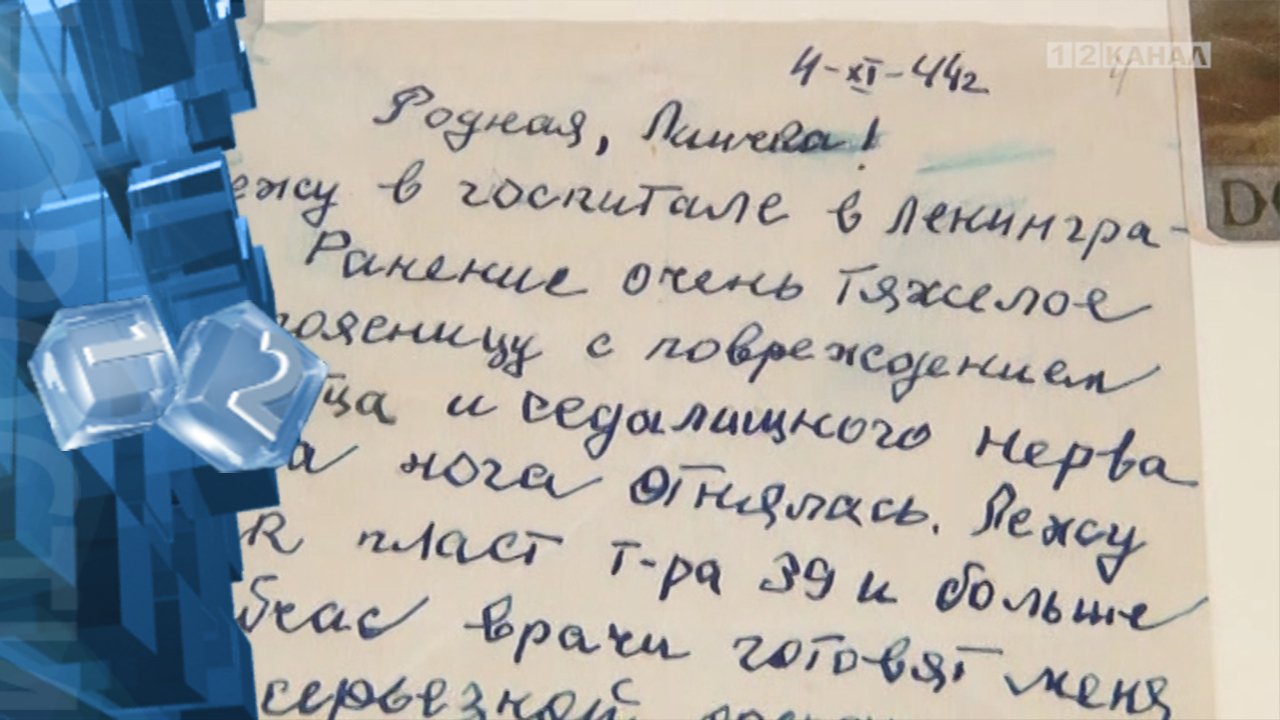 12 КАНАЛ
4-XI-44г
4
Родная, Линчка!
ежу в госпитале в Ленингра-
Ранение очень тяжелое
поясницу с повреждением
тца и седалищного нерва
а нога отнялась. Лежу
к пласт т-ра 39 и больше
час врачи готовят меня
серьезной
12